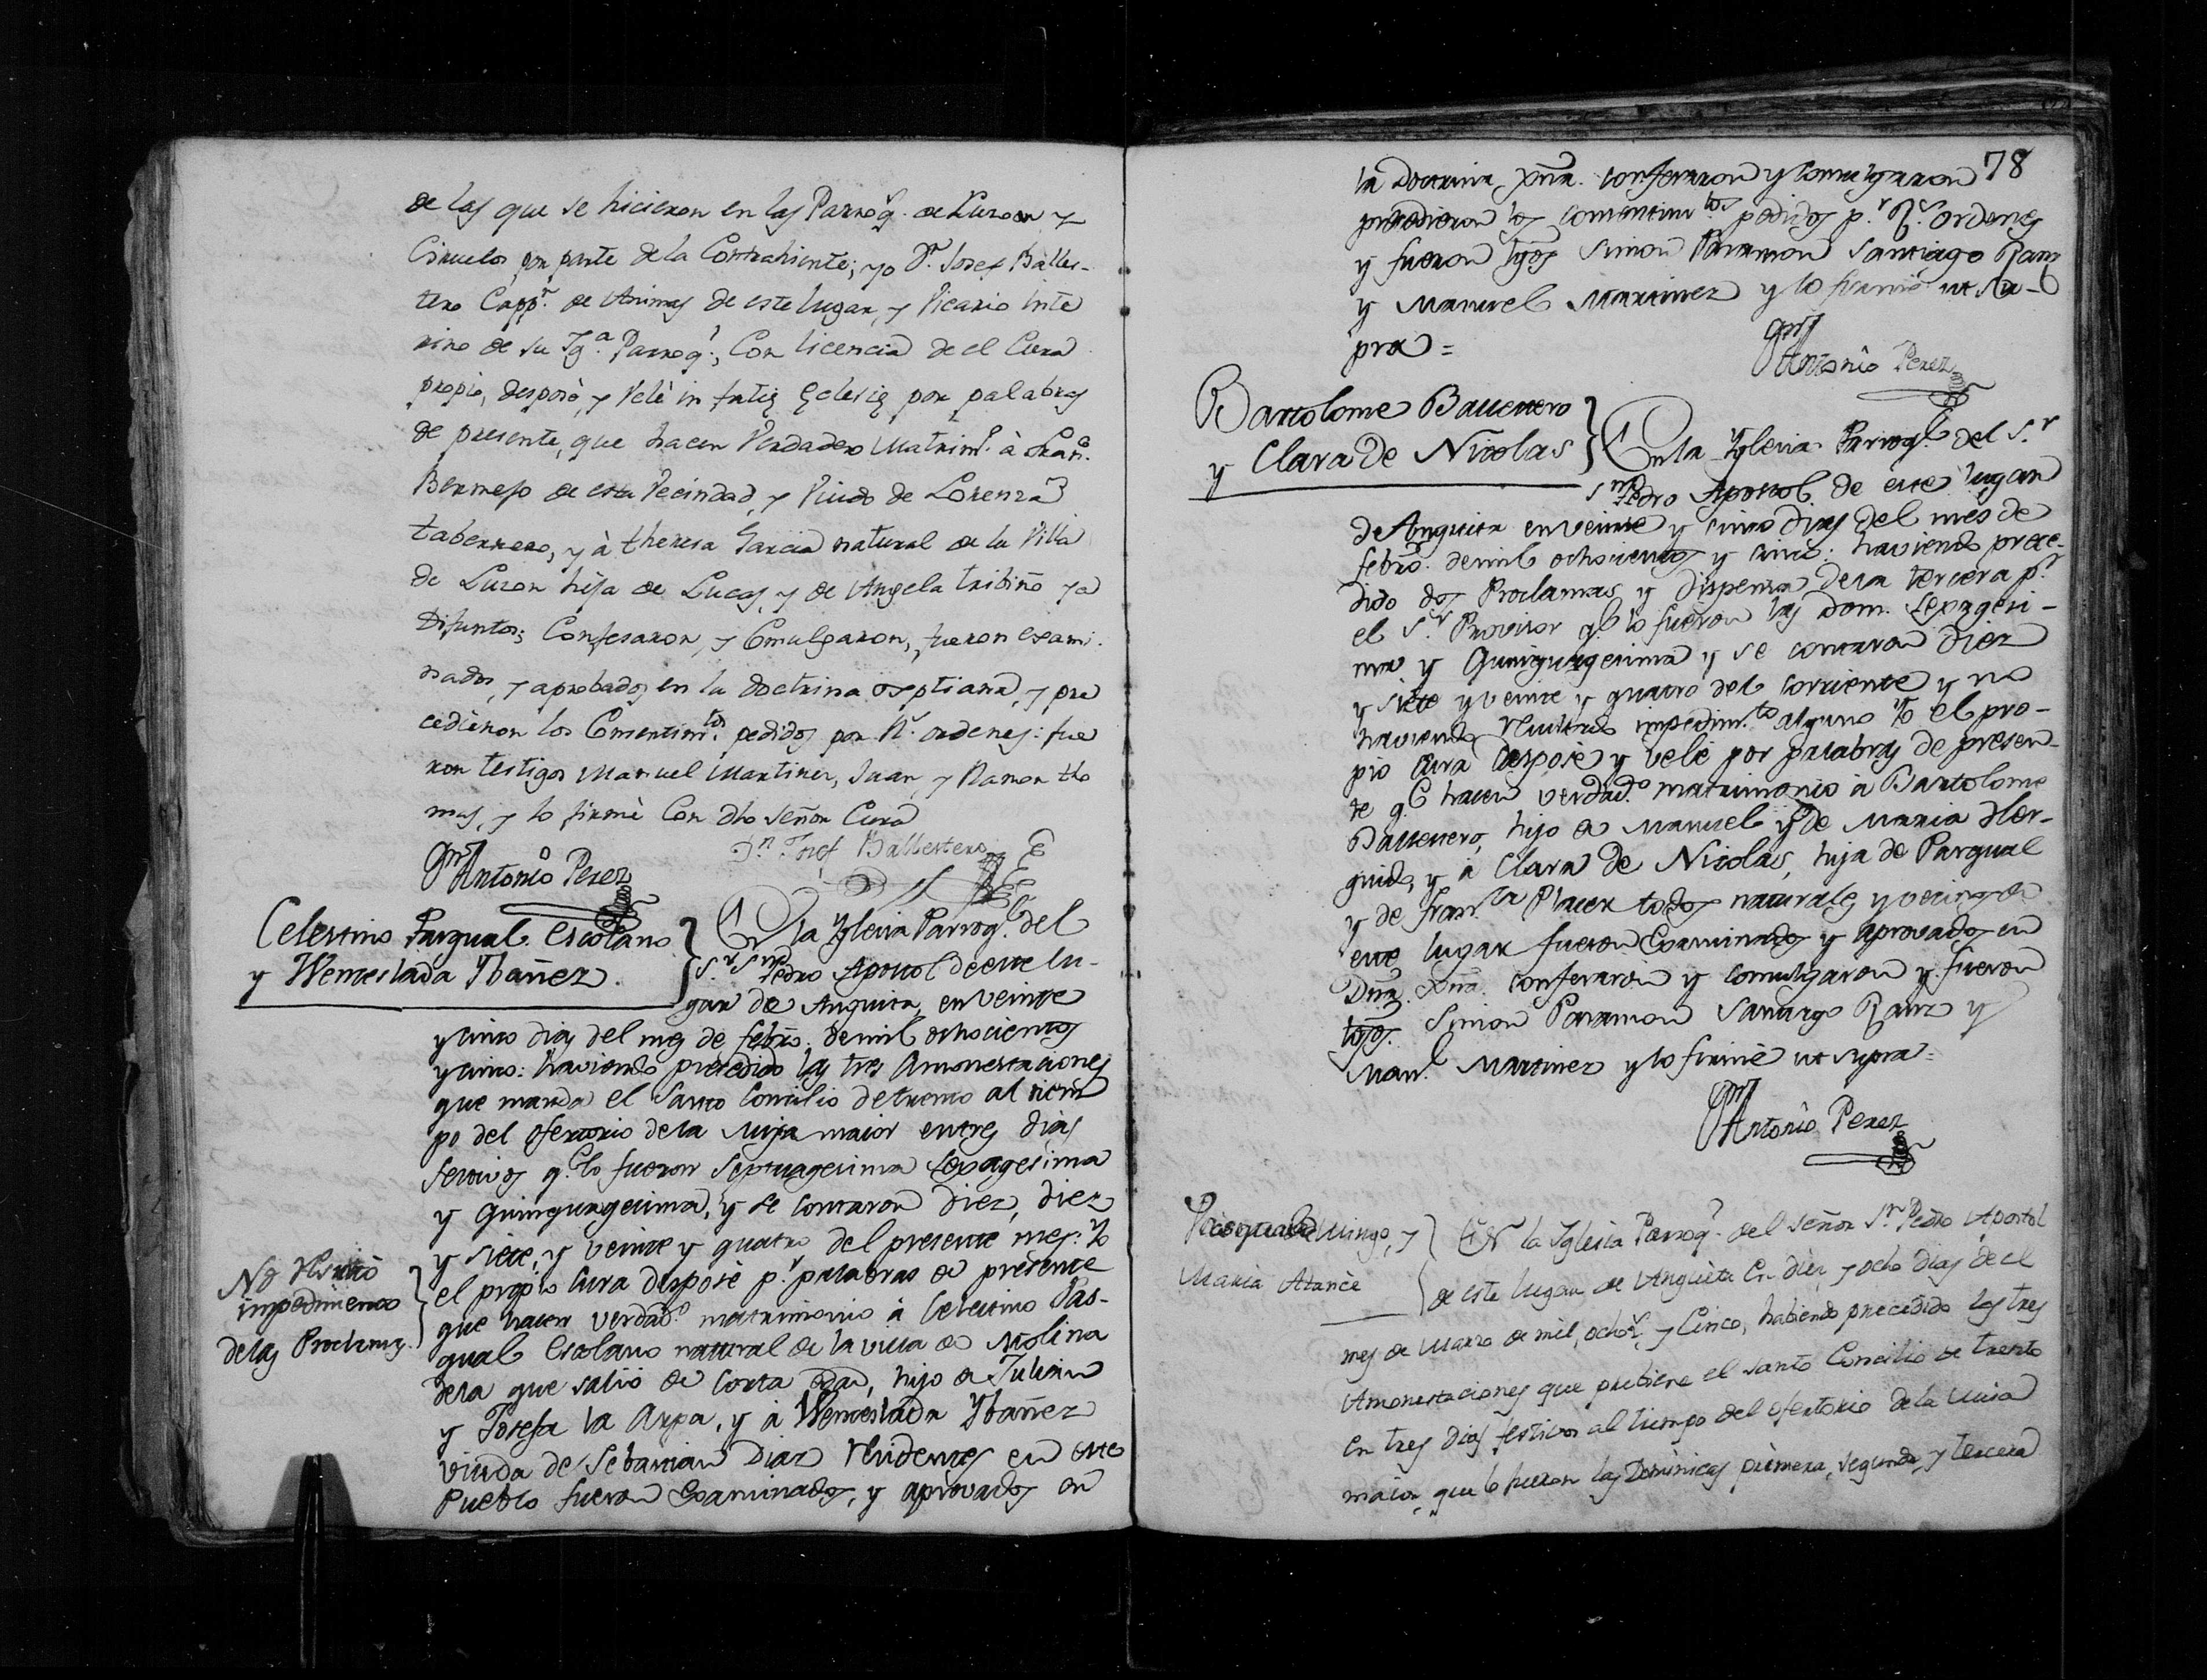 de las que se hicieron en las Parroq.s de Luzon y
Ciruelos por parte de la Contrahiente; yo D.n Josef Balles-
tero Capp.n de Animas de este lugar, y Vicario inte
rino de su Yg.a Parroq.l, Con licencia de el Cura
propio, desposè, y Velè in facie Eclesie por palabras
de presente, que hacen Verdadero Matrim.o à Fran.co
Bermejo de esta Vecindad, y Viudo de Lorenza
tabernero, y à theresa Garcia natural de la Villa
de Luzon hija de Lucas, y de Angela tribiño ya
Difuntos; Confesaron, y Comulgaron, fueron exami
nados, y aprobados en la doctrina xptiana, y pre
cedieron los Consentim.tos pedidos por R.s ordenes: fue
ron testigos Manuel Martinez, Juan, y Ramon tho
mas, y lo firmè Con dho señor Cura
D.n Josef Ballestero
Antonio Perez
Celestino Pasqual Escolano
y Wenceslada Ybañez.
En la Yglesia Parroq.l del
S.r S.n Pedro Apostol de este lu-
gar de Anguita, en veinte
y cinco dias del mes de febro. de mil ochocientos
y cinco: haviendo precedido las tres Amonestaciones
que manda el Santo Concilio de trento al tiem
po del ofertorio de la misa maior en tres dias
festivos q.e lo fueron Septuagesima Sexagesima
y Quinquagesima, y se contaron diez, diez
y siete, y veinte y quatro del presente mes: Yo
el propio Cura desposè p.r palabras de presente
que hacen verdad.o matrimonio à Celestino Pas-
qual Escolano natural de la villa de Molina
de la que salió de corta edad, hijo de Julian
y Josefa la Arpa, y à Wenceslada Ybañez
viuda de Sebastian Diaz Residentes en este
Pueblo fueron Examinados, y aprovados en
No Resultò
impedimento
de las Proclamas.
78
la Doctrina Xptña. confesaron y comulgaron
precedieron los consentim.tos pedidos p.r R.s ordenes
y fueron tgos Simon Paramon Santiago Ranz
y Manuel Martinez y lo firmè ut su-
pra =
Antonio Perez
Bartolome Ballestero
y Clara de Nicolas
En la Yglesia Parroq.l del S.r
S.n Pedro Apostol de este lugar
de Anguita en veinte y cinco dias del mes de
febro. de mil ochocientos y cinco: haviendo prece-
dido dos Proclamas y dispensa de la tercera p.r
el S.r Provisor q.e lo fueron las dom. Sexagesi-
ma y Quinquagesima y se contaron diez
y siete y veinte y quatro del corriente y no
haviendo Resultado impedim.to alguno Yo el pro-
pio Cura desposè y velè por palabras de presen-
te q.e hacen verdad.o matrimonio à Bartolome
Ballestero, hijo de Manuel y de Maria Her-
guido, y à Clara de Nicolas, hija de Pasqual
y de Fran.ca Placer todos naturales y vecinos de
este lugar fueron Examinados y aprovados en
Dña. Xña. confesaron y comulgaron y fueron
tgos. Simon Paramon Santiago Ranz y
Man.l Martinez y lo firmè ut supra =
Antonio Perez
Pasqual Mingo, y
Maria Atance
En la Iglesia Parroq.l del señor S.n Pedro Apostol
de este lugar de Anguita En diez y ocho dias de el
mes de Marzo de mil, ochoz.s y Cinco, habiendo precedido las tres
Amonestaciones que prebiene el santo Concilio de trento
en tres dias festivos al tiempo del ofertorio de la Misa
maior, que lo fueron las Dominicas primera, segunda, y tercera